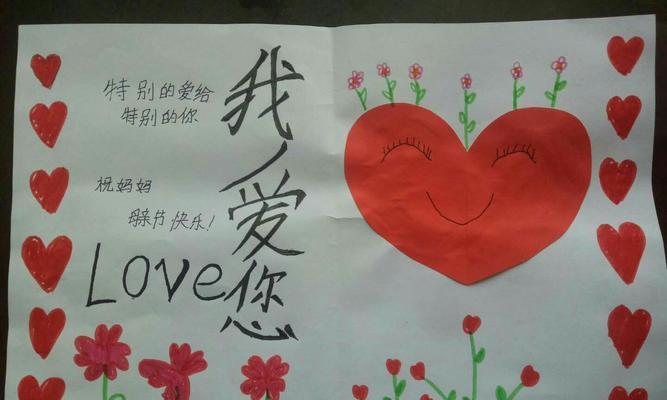 特别的爱给
特别的你
祝妈妈
母亲节快乐!
Love
我爱您